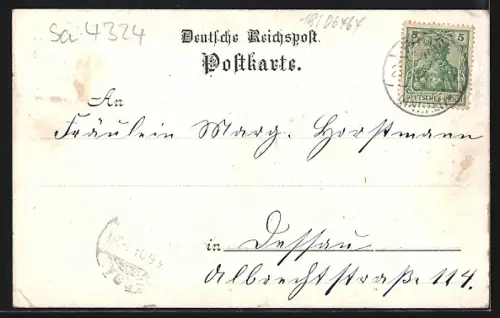 Sa 4324
Deutsche Reichspost.
Postkarte.
5 5
DEUTSCHES REICH
An
Fräulein Marg. Horstmann
in Dessau
Albrechtstraße 114.